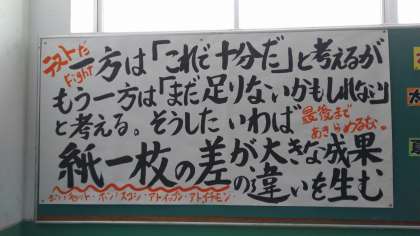 テストだ
Fight
一方は「これで十分だ」と考えるが
もう一方は「まだ足りないかもしれない」
と考える。そうした いわば
最後まで
あきらめるな。
紙一枚の差が大きな成果
の違いを生む